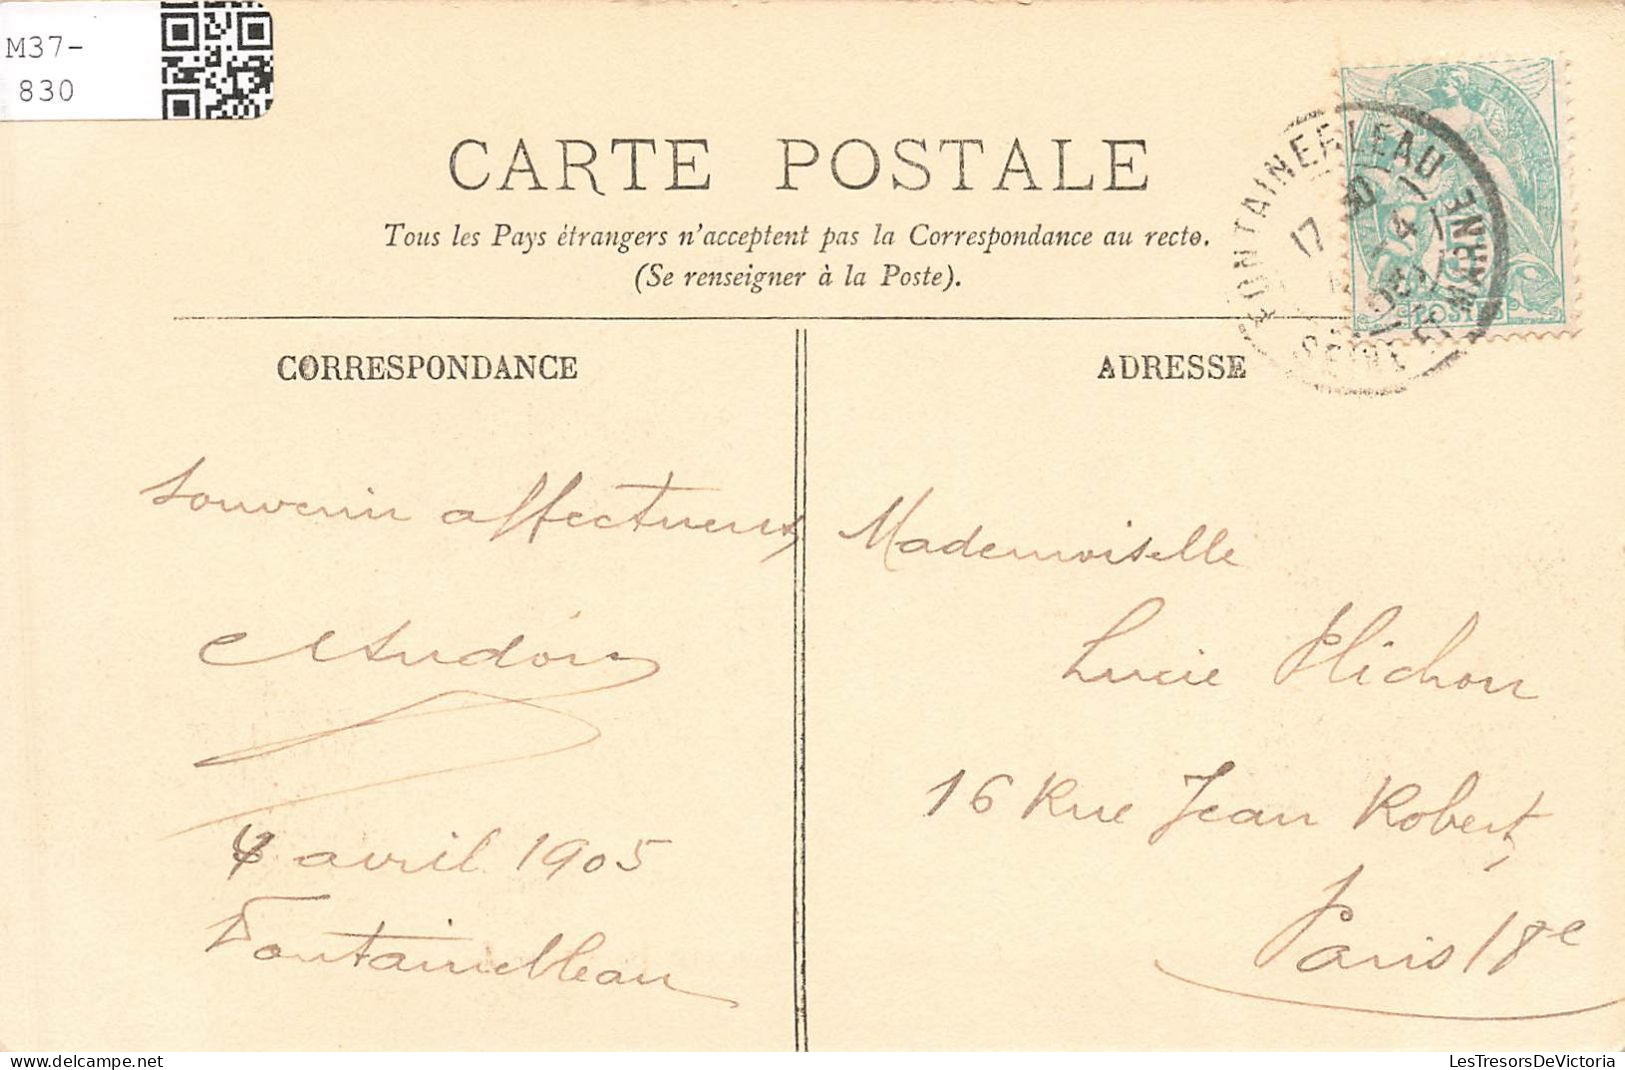 M37-
830
CARTE POSTALE
Tous les Pays étrangers n'acceptent pas la Correspondance au recto.
(Se renseigner à la Poste).
FONTAINEBLEAU
SEINE ET MARNE
17 30
4
05
POSTES
CORRESPONDANCE
souvenir affectueux
4 avril 1905
Fontainebleau
ADRESSE
Mademoiselle
Lucie Plichon
16 Rue Jean Robert,
Paris 18e
LesTresorsDeVictoria
delcampe.net